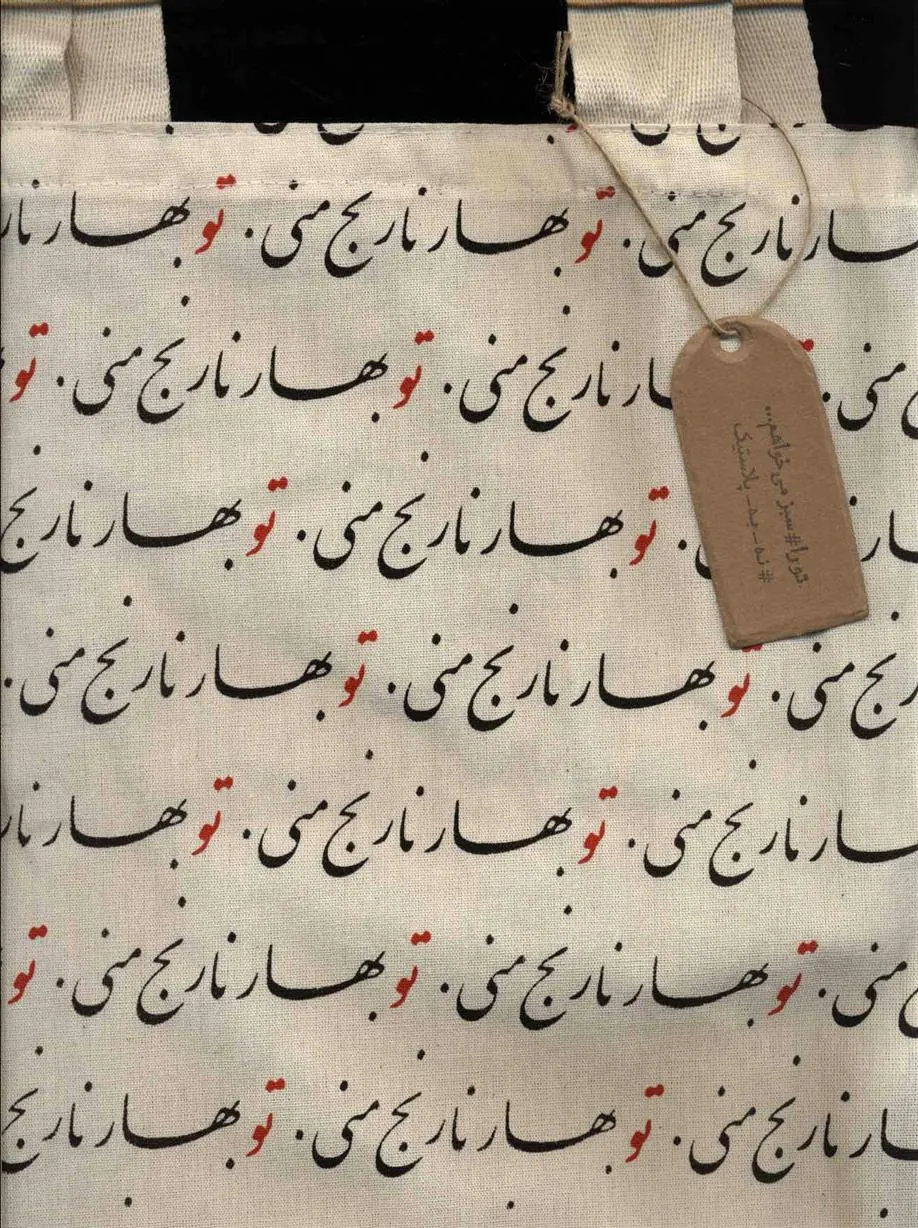 نارنج منی . تو بهار نارنج منی . تو بهار
منی . تو نارنج منی . تو بهار نارنج منی . تو
. تو بهار نارنج منی . تو بهار نارنج
منی . تو بهار نارنج منی . تو بهار نارنج منی .
نارنج منی . تو بهار نارنج منی . تو بهار
منی . تو بهار نارنج منی . تو بهار نارنج منی . تو
نارنج منی . تو بهار نارنج منی . تو بهار نارنج
تو را #سبز می‌خواهم...
#نه_به_پلاستیک